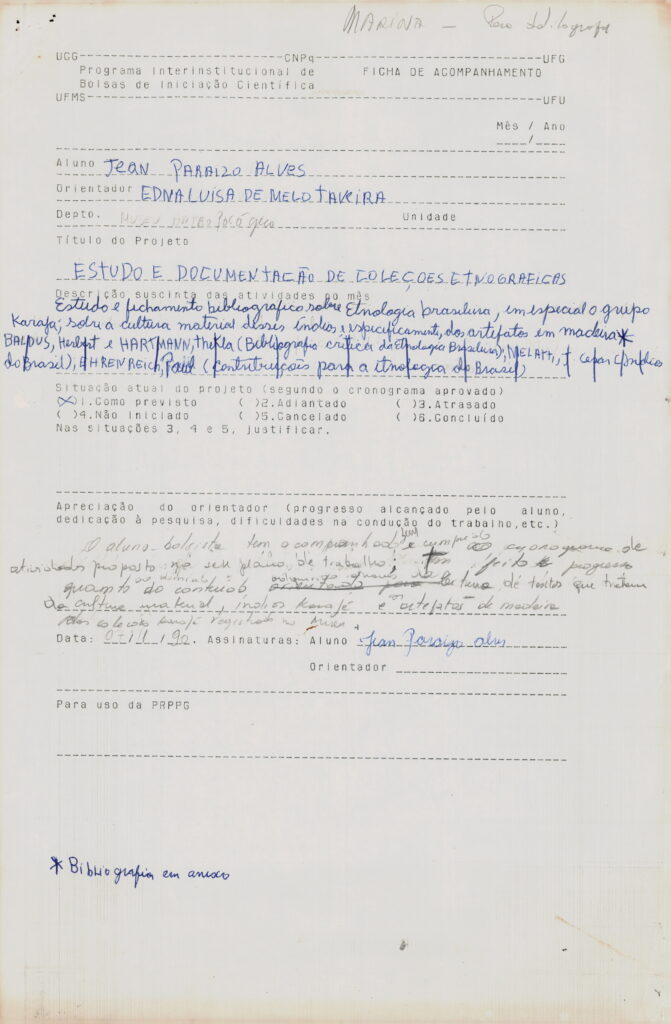 MARINA — Para
UCG CNPq UFG
Programa Interinstitucional de FICHA DE ACOMPANHAMENTO
Bolsas de Iniciação Científica
UFMS UFU
Mês / Ano
/
Aluno Jean PARAIZO ALVES
Orientador EDNA LUISA DE MELO TAVEIRA
Depto. MUSEU ANTROPOLÓGICO Unidade
Título do Projeto
ESTUDO E DOCUMENTAÇÃO DE COLEÇÕES ETNOGRAFICAS
Descrição suscinta das atividades no mês
Estudo e fichamento bibliografico sobre Etnologia brasileira, em especial o grupo
Karaja; sobre a cultura material desses indios e especificamente, dos artefatos em madeira*
BALDUS, Herbert e HARTMANN, Thekla (Bibliografia critica da Etnologia Brasileira), MELATTI, J cezar (Indios
do Brasil), EHRENREICH, Paul (contribuições para a etnologia do Brasil)
Situação atual do projeto (segundo o cronograma aprovado)
(X)1.Como previsto ( )2.Adiantado ( )3.Atrasado
( )4.Não Iniciado ( )5.Cancelado ( )6.Concluído
Nas situações 3, 4 e 5, justificar.
Apreciação do orientador (progresso alcançado pelo aluno,
dedicação à pesquisa, dificuldades na condução do trabalho,etc.)
O aluno-bolsista tem acompanhado bem e cumprido o cronograma de
atividades proposto no seu plano de trabalho; Tem feito progresso
quanto ao conteúdo leitura de textos que tratam
da cultura material, indios Karajá e os artefatos de madeira
das coleções Karajá registradas no Museu.
Data: 07/11/90. Assinaturas: Aluno Jean Paraizo Alves
Orientador
Para uso da PRPPG
* Bibliografia em anexo